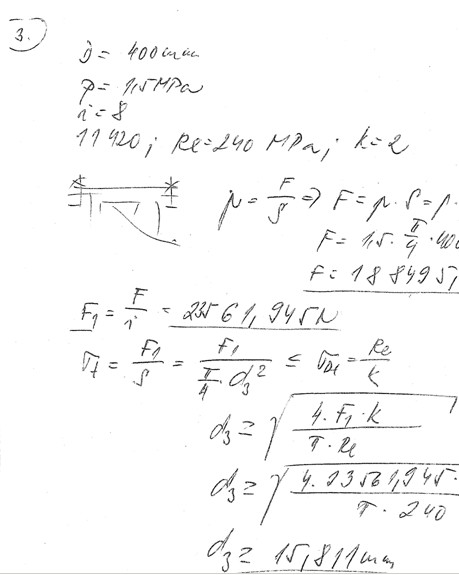 3.
D = 400mm
p = 1,5MPa
i = 8
11420; Re=240 MPa; k=2
p = F/S ⇒ F = p · S = p ·
F = 1,5 · π/4 · 400
F = 188495,
F1 = F/i = 23561,945N
σt = F1/S = F1/(π/4 · d3²) ≤ σDt = Re/k
d3 ≥ √(4 · F1 · k / π · Re)
d3 ≥ √(4 · 23561,945 · / π · 240)
d3 ≥ 15,811mm